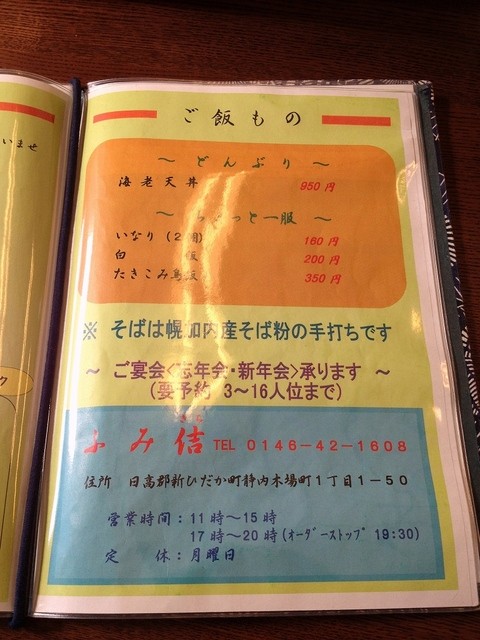 いませ
ご飯もの
～ どんぶり ～
海老天丼 950円
～ ょっと一服 ～
いなり(2個) 160円
白 飯 200円
たきこみ鳥飯 350円
※ そばは幌加内産そば粉の手打ちです
～ ご宴会<忘年会・新年会>承ります ～
(要予約 3～16人位まで)
ふみ佶 TEL 0146-42-1608
住所 日高郡新ひだか町静内木場町1丁目1-50
営業時間：11時～15時
17時～20時(オーダーストップ 19:30)
定 休：月曜日
ク